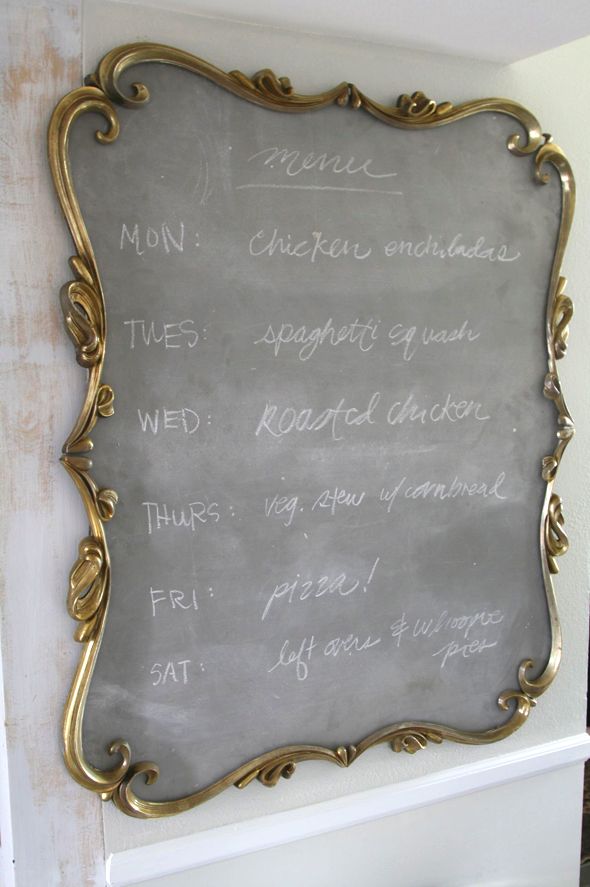 menu
MON: chicken enchiladas
TUES: spaghetti squash
WED: Roasted chicken
THURS: veg. stew w/ cornbread
FRI: pizza!
SAT: left overs & whoopie
pies